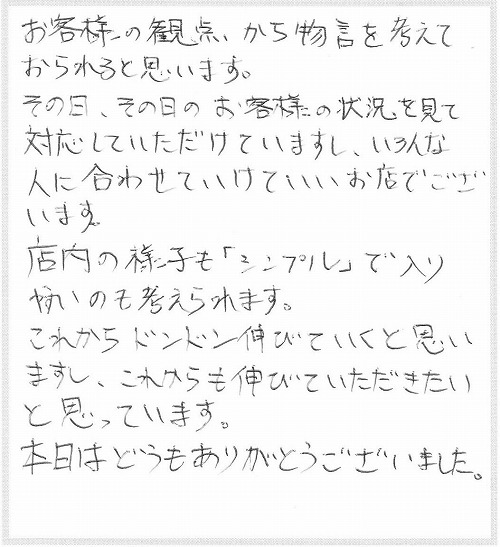 お客様の観点、から物言を考えて
おられると思います。
その日、その日のお客様の状況を見て
対応していただけていますし、いろんな
人に合わせていけていいお店でござ
います。
店内の様子も「シンプル」で入り
やすいのも考えられます。
これからドンドン伸びていくと思い
ますし、これからも伸びていただきたい
と思っています。
本日はどうもありがとうございました。